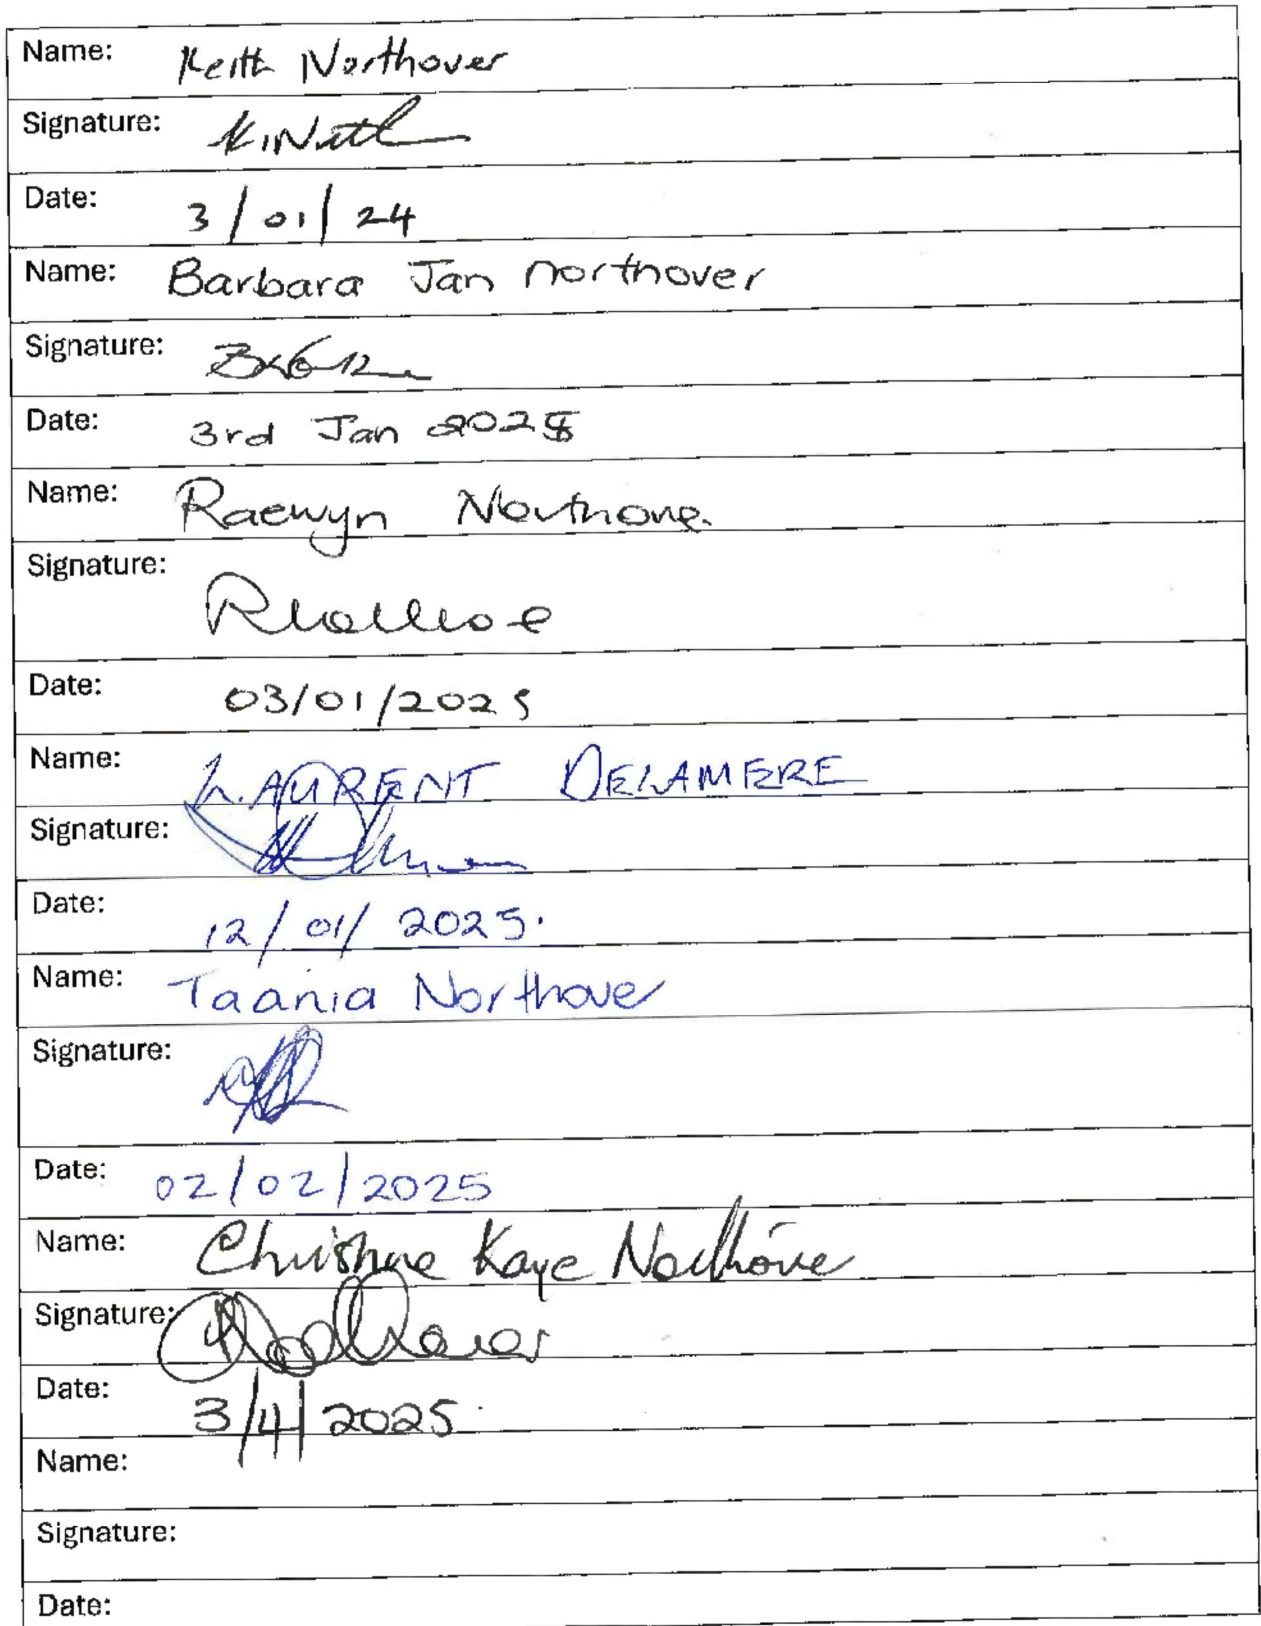 Name: Keith Northover
Signature:
Date: 3/01/24
Name: Barbara Jan Northover
Signature:
Date: 3rd Jan 2025
Name: Raewyn Northove
Signature:
Date: 03/01/2025
Name: LAURENT DELAMERE
Signature:
Date: 12/01/2025.
Name: Taania Northover
Signature:
Date: 02/02/2025
Name: Christine Kaye Northover
Signature:
Date: 3/4/2025
Name:
Signature:
Date: